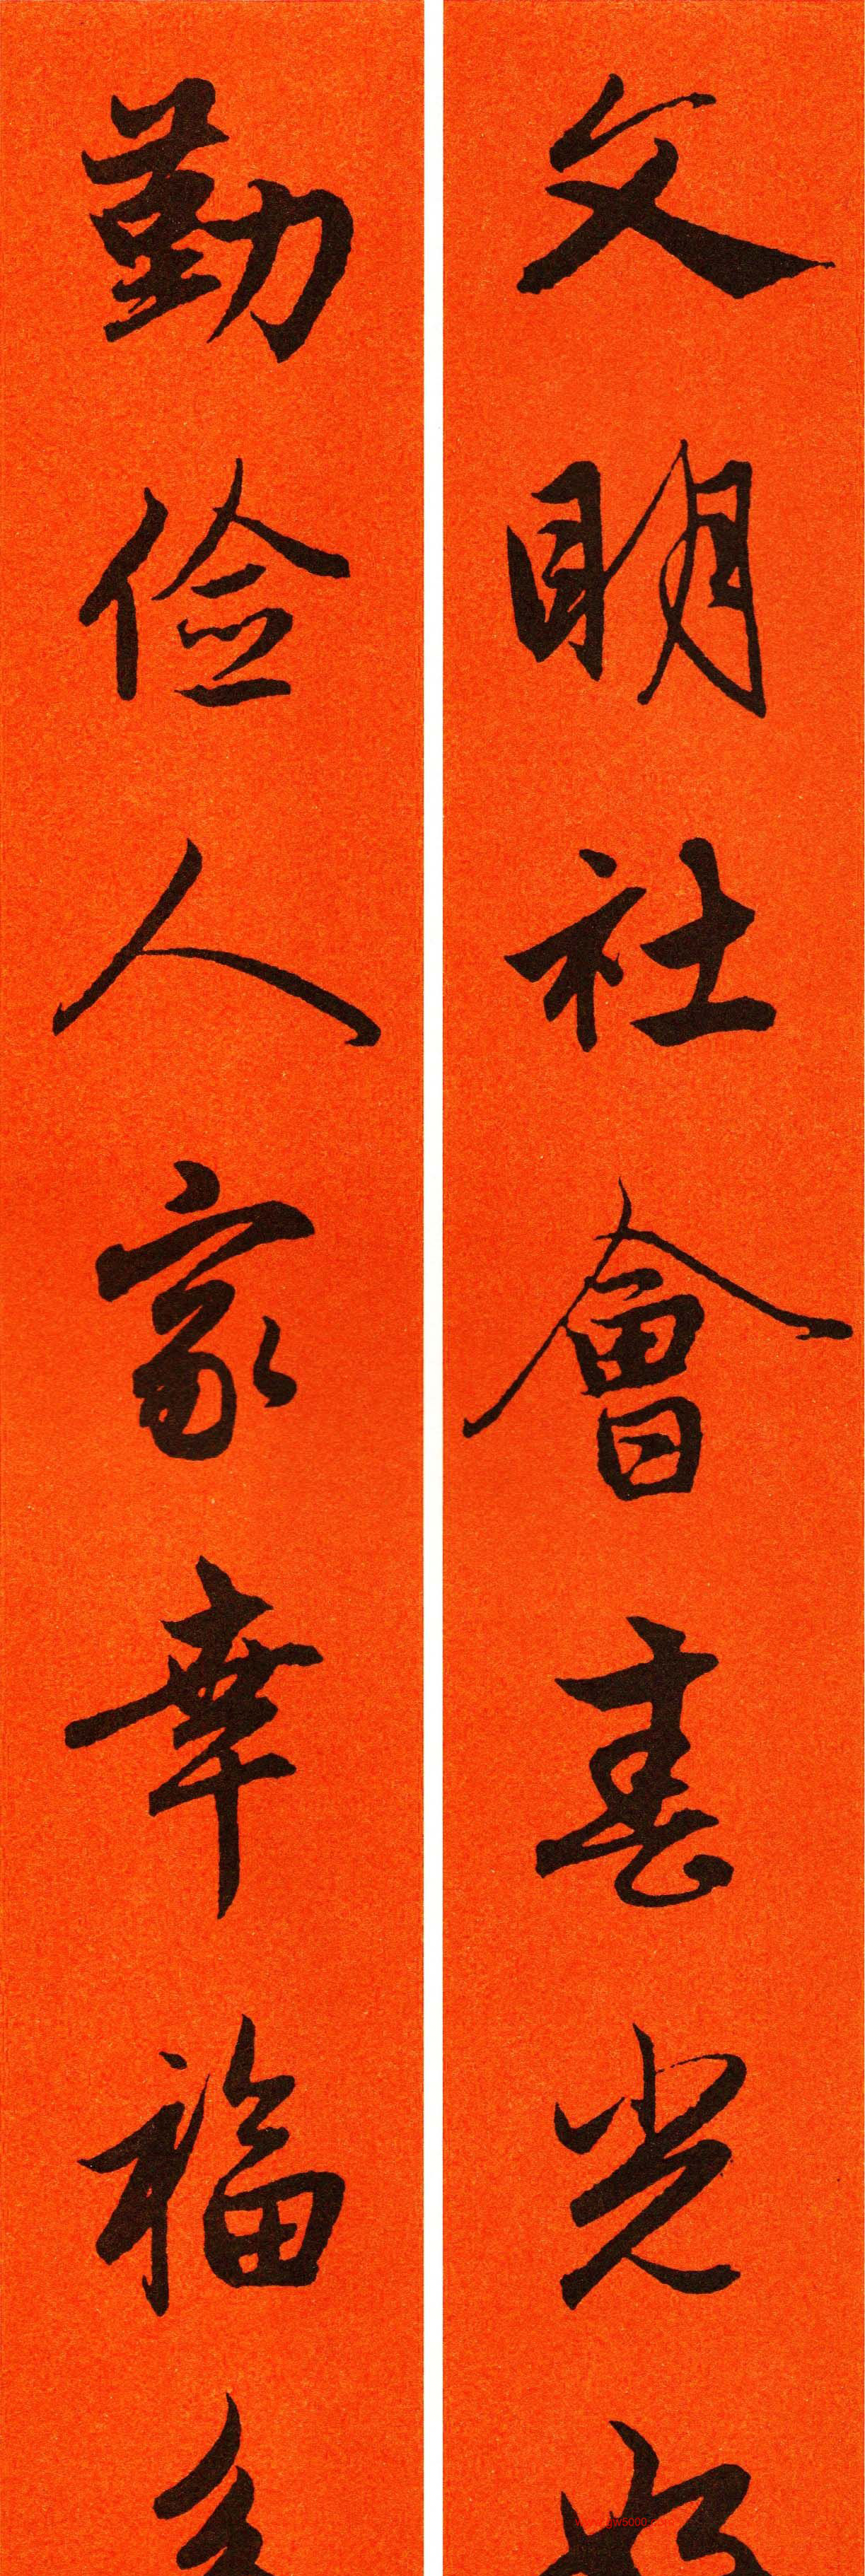 文明社會春光
勤俭人家幸福